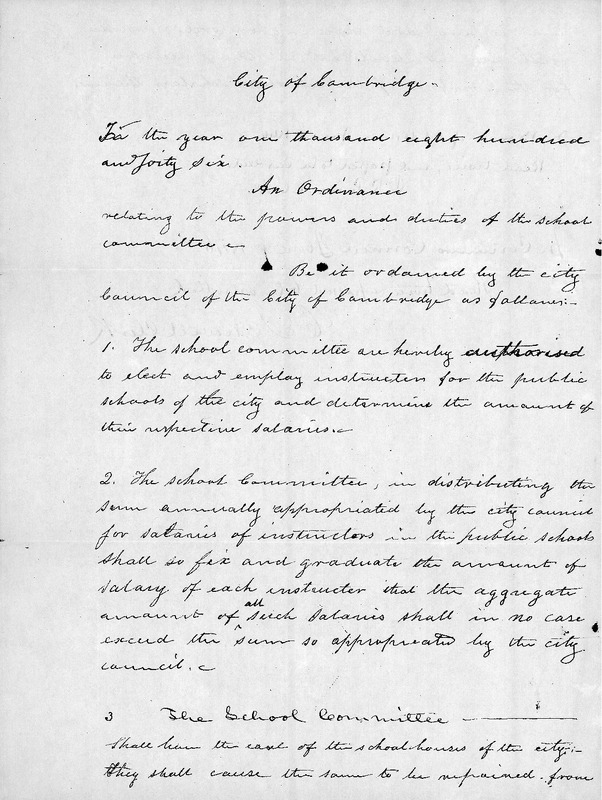 City of Cambridge.
In the year one thousand eight hundred
and forty six.
An Ordinance
relating to the powers and duties of the school
committee.
Be it ordained by the city
Council of the City of Cambridge as follows:-
1. The school committee are hereby authorised
to elect and employ instructors for the public
schools of the city and determine the amount of
their respective salaries.
2. The school Committee, in distributing the
sum annually appropriated by the city council
for salaries of instructors in the public schools
shall so fix and graduate the amount of
salary of each instructer that the aggregate
amount of all such salaries shall in no case
exceed the sum so appropriated by the city
council.
3 The School Committee
shall have the care of the school houses of the city:-
they shall cause the same to be repaired. from